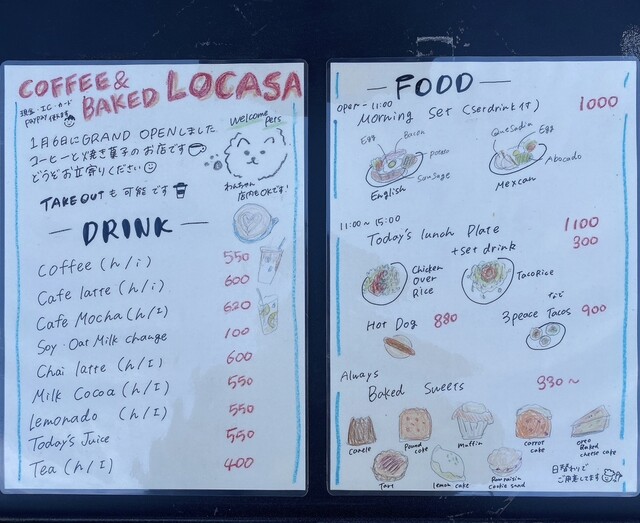 COFFEE &
BAKED LOCASA
現金・IC・カード
PayPay 使えます
1月6日にGRAND OPENしました
コーヒーと焼き菓子のお店です
どうぞお立寄りください
TAKE OUTも可能です
Welcome
Pets
わんちゃん
店内もOKです!
— DRINK —
Coffee (h/i) 550
Cafe latte (h/i) 600
Cafe Mocha (h/I) 620
Soy・Oat Milk change 100
Chai latte (h/I) 600
Milk Cocoa (h/I) 550
Lemonado (h/I) 550
Today's Juice 550
Tea (h/I) 400
— FOOD —
OPEN~11:00
Morning Set (Set drink 付) 1000
Egg
Bacon
Potato
Sausage
English
Quesadia
Egg
Abocado
Mexcan
11:00~15:00
Today's lunch Plate 1100
+ set drink 300
Chicken
Over
Rice
Taco Rice
Hot Dog 880
など
3 peace Tacos 900
Always
Baked Sweets 330~
Canele
Pound
cake
Muffin
Carrot
cake
oreo
Baked
cheese cake
Tart
lemon cake
Rumraisin
cookie sand
日替わりで
ご用意してます